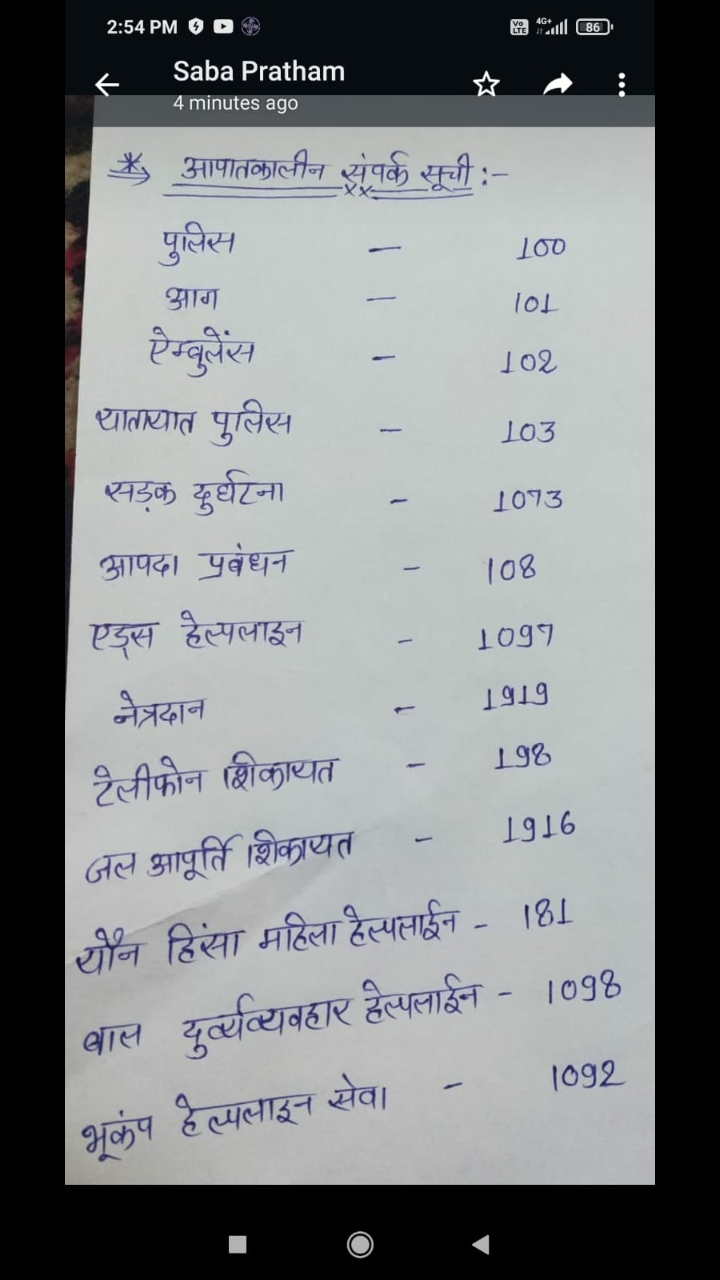 2:54 PM
Vo LTE 4G+ 86
Saba Pratham
4 minutes ago
* आपातकालीन संपर्क सूची :-
पुलिस - 100
आग - 101
ऐम्बुलेंस - 102
यातायात पुलिस - 103
सड़क दुर्घटना - 1073
आपदा प्रबंधन - 108
एड्स हेल्पलाइन - 1097
नेत्रदान - 1919
टेलीफोन शिकायत - 198
जल आपूर्ति शिकायत - 1916
यौन हिंसा महिला हेल्पलाईन - 181
बाल दुर्व्यव्यवहार हेल्पलाईन - 1098
भूकंप हेल्पलाइन सेवा - 1092